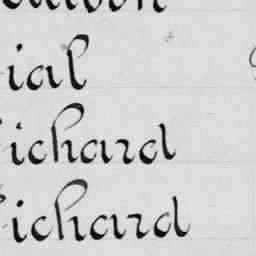 ial
ichard
ichard